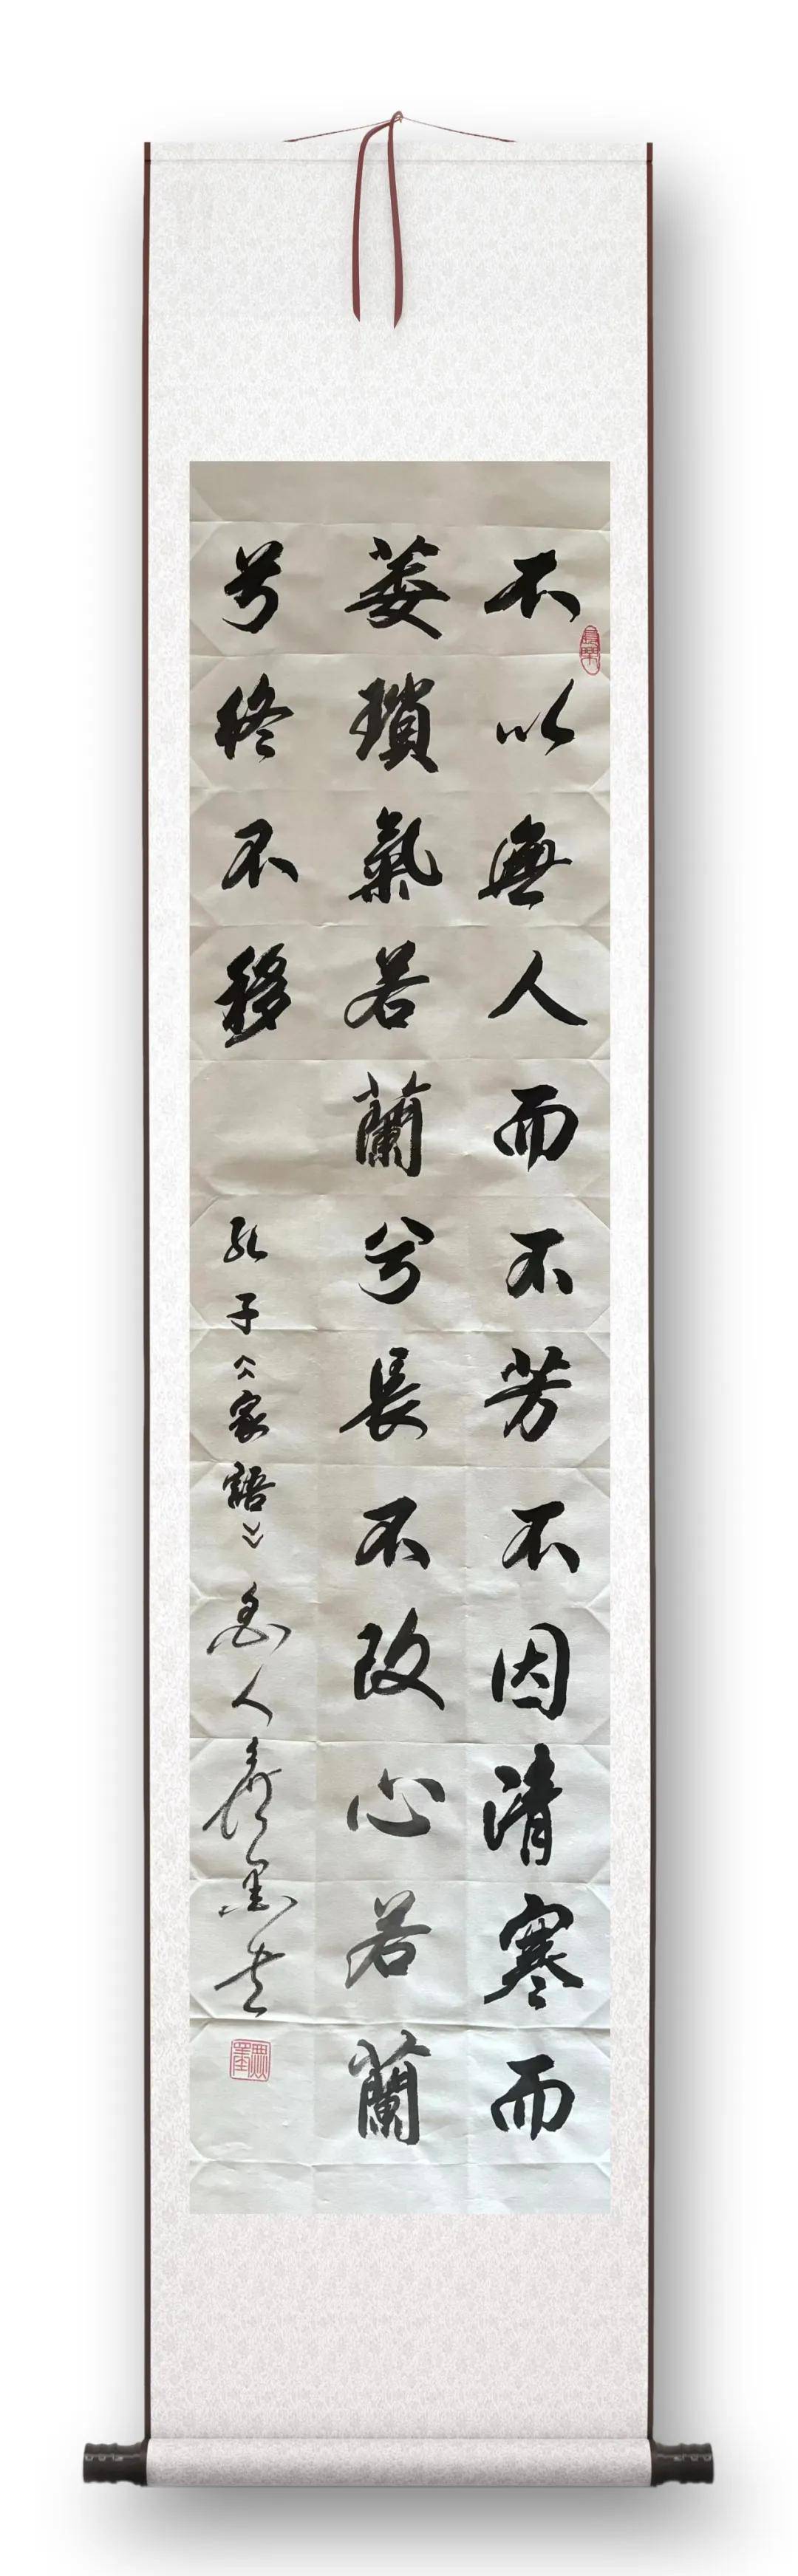 不以無人而不芳不因清寒而
萎瑣氣若蘭兮長不改心若蘭
兮終不移
孔子《家語》
人